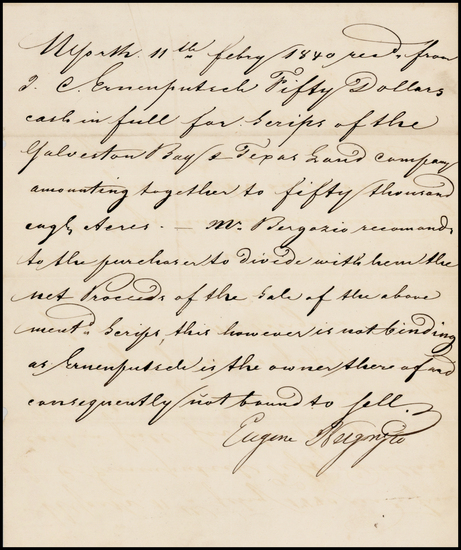 NYork. 11th febry 1840 recd. from
J. C. Ernenputsch Fifty Dollars
cash in full for Scrips of the
Galveston Bay & Texas Land company
amounting together to fifty thousand
Acres. — Mr. Bergozio recomands
to the purchaser to divide with hem the
net Proceeds of the Sale of the above
mentd. Scrips, this however is not binding
as Ernenputsch is the owner there of and
consequently not bound to sell.
Eugene